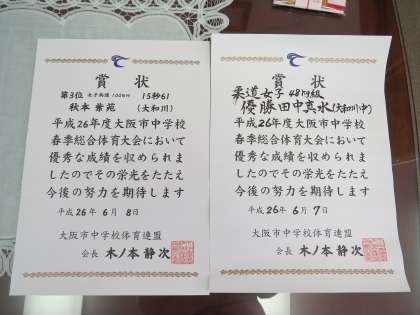 賞状
第3位 女子共通100mH 15秒61
秋本 紫苑 (大和川)
平成26年度大阪市中学校
春季総合体育大会において
優秀な成績を収められま
したのでその栄光をたたえ
今後の努力を期待します
平成 26年 6月 8日
大阪市中学校体育連盟
会長 木ノ本 静次
賞状
柔道女子48kg級
優勝 田中真水(大和川中)
平成26年度大阪市中学校
春季総合体育大会において
優秀な成績を収められま
したのでその栄光をたたえ
今後の努力を期待します
平成 26年 6月 7日
大阪市中学校体育連盟
会長 木ノ本 静次